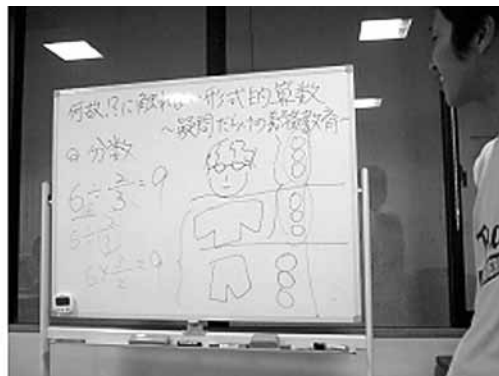 何故!?に触れない形式的算数
～疑問だらけの算数教育～
分数
6÷2/3=9
6÷2/3
6×3/2=9